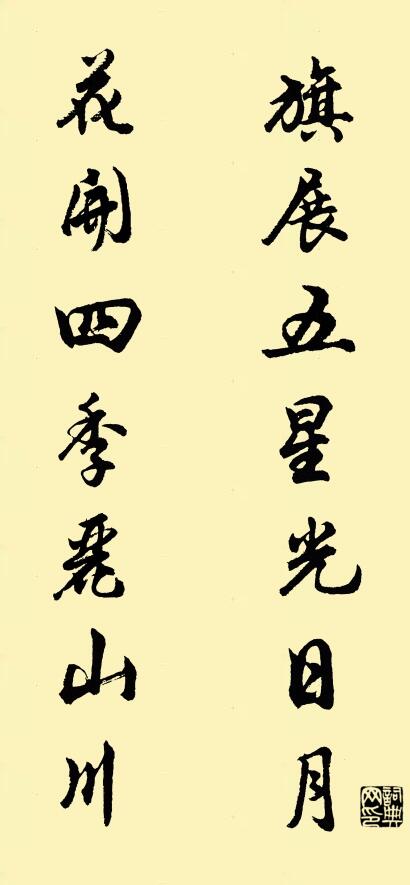 旗展五星光日月
花開四季麗山川
詞典网印